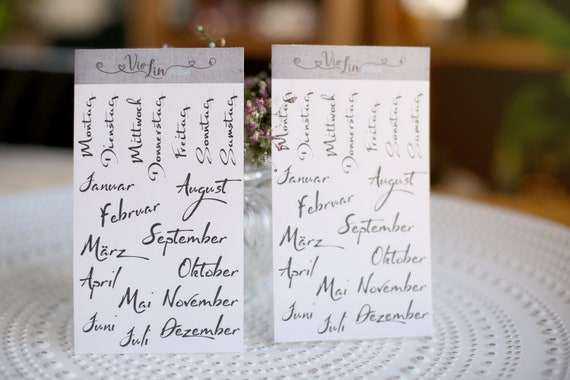 Vio
Lin
Montag
Dienstag
Mittwoch
Donnerstag
Freitag
Sonntag
Samstag
Januar
August
Februar
September
März
Oktober
April
Mai November
Juni
Juli Dezember
Vio
Lin
Montag
Dienstag
Mittwoch
Donnerstag
Freitag
Sonntag
Samstag
Januar
August
Februar
September
März
Oktober
April
Mai November
Juni
Juli Dezember